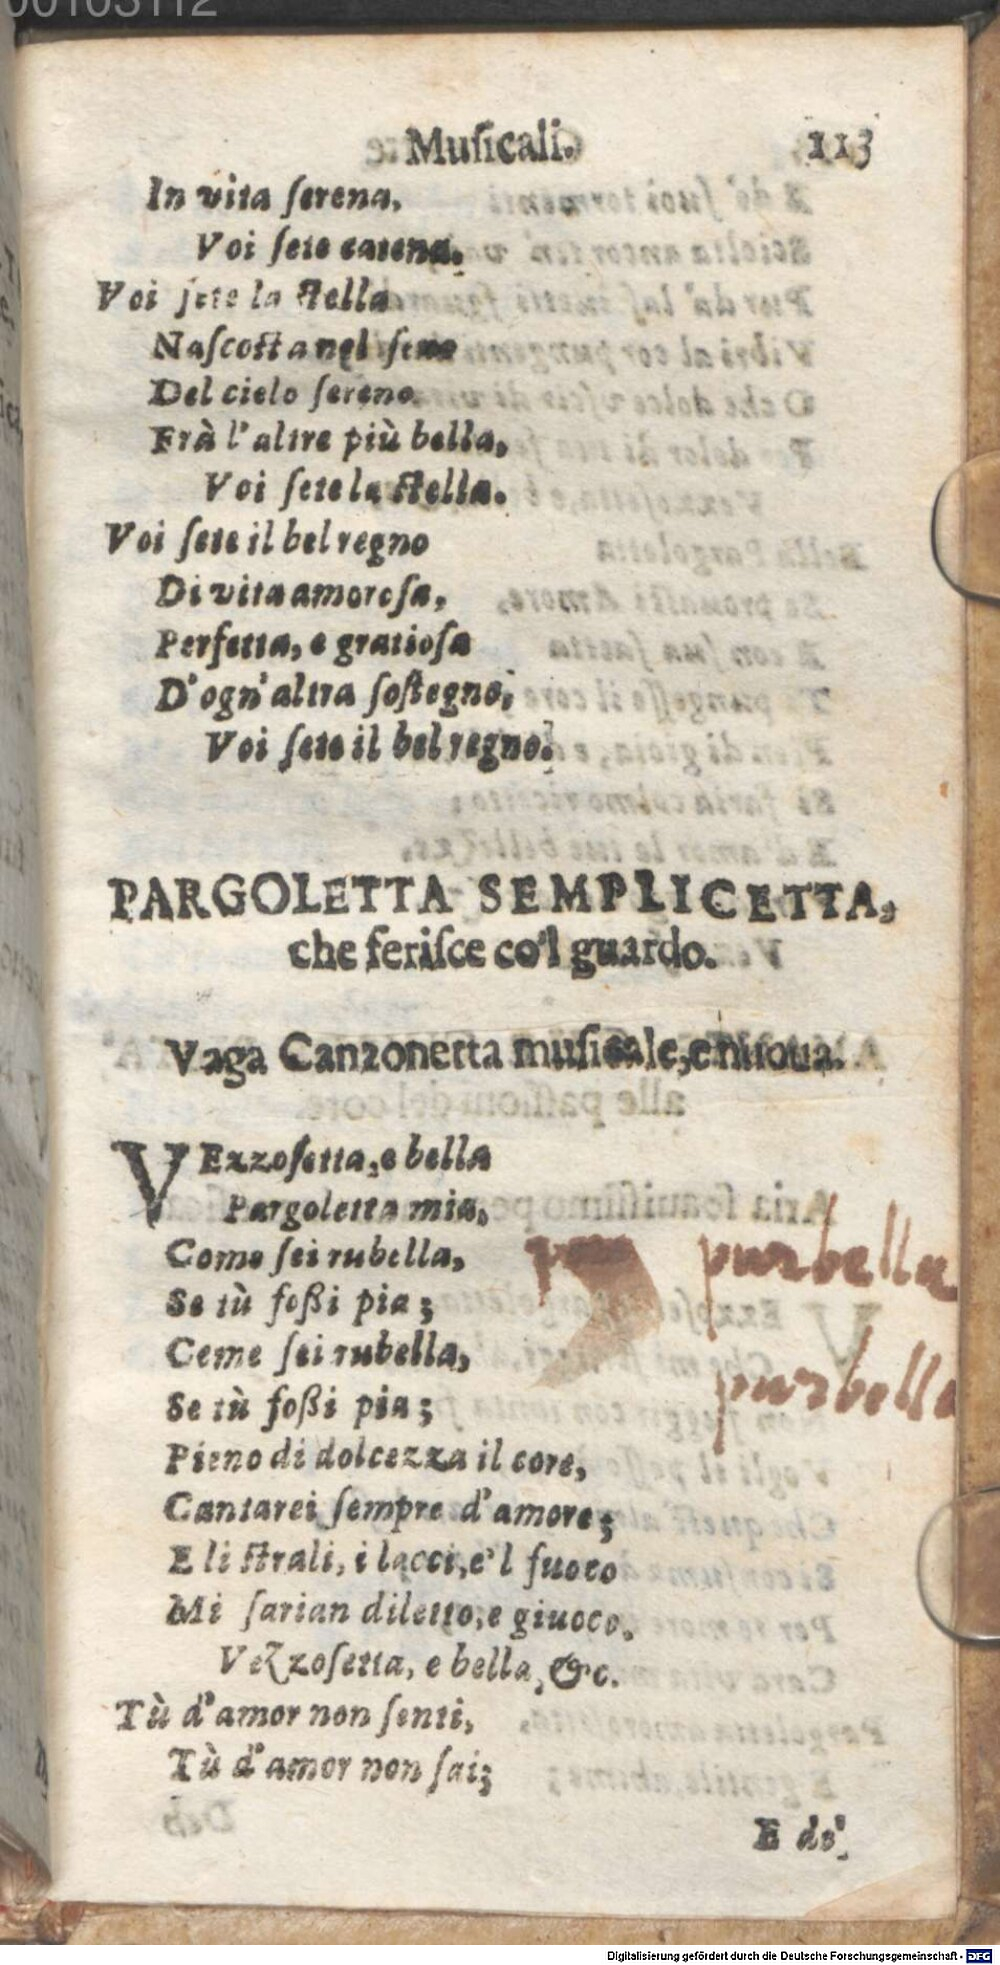 00103112
Muſicali. 113
In vita ſerena,
Voi ſete catena.
Voi ſete la ſtella
Naſcoſta nel ſeno
Del cielo ſereno
Frà l'altre più bella,
Voi ſete la ſtella.
Voi ſete il bel regno
Di vita amoroſa,
Perfetta, e gratioſa
D'ogn'altra ſoſtegno,
Voi ſete il bel regno.
PARGOLETTA SEMPLICETTA,
che feriſce co'l guardo.
Vaga Canzonetta muſicale, e nuoua.
VEzzoſetta, e bella
Pargoletta mia,
Come ſei rubella,
Se tù foßi pia;
Ceme ſei rubella,
Se tù foßi pia;
Pieno di dolcezza il core,
Cantarei ſempre d'amore;
E li ſtrali, i lacci, e'l fuoco
Mi ſarian diletto, e giuoco.
Vezzoſetta, e bella, &c.
Tù d'amor non ſenti,
Tù d'amor non ſai;
E de'
purbella
purbella
Digitalisierung gefördert durch die Deutsche Forschungsgemeinschaft - DFG